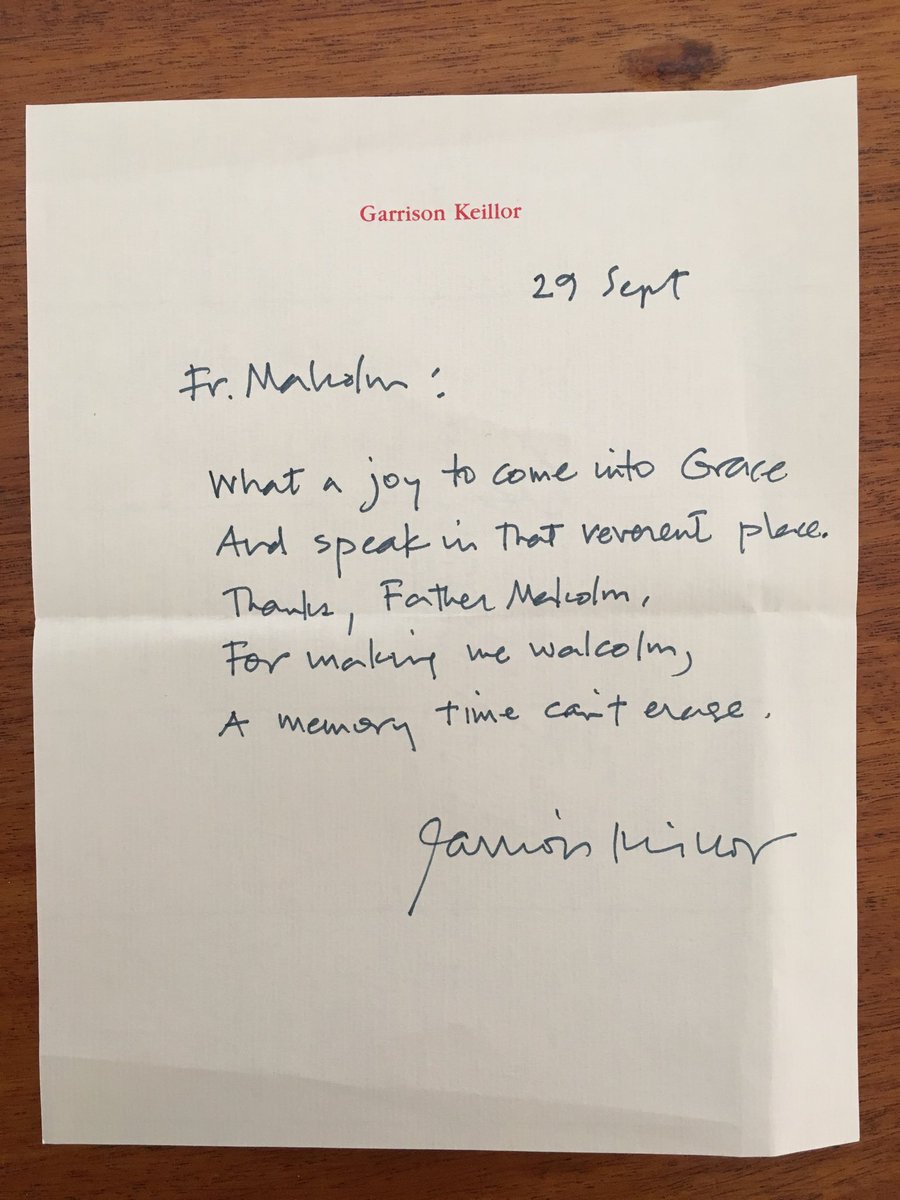 Garrison Keillor
29 Sept
Fr. Malcolm:
What a joy to come into Grace
And speak in that reverent place.
Thanks, Father Malcolm,
For making me walcolm,
A memory time can't erase.
Garrison Keillor